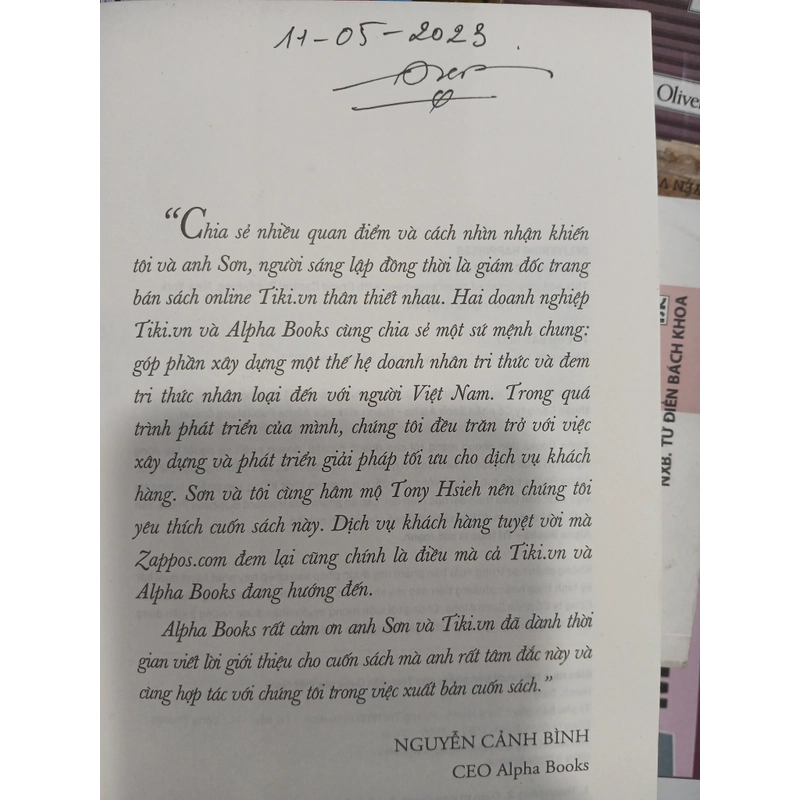 11-05-2023
Olive
"Chia sẻ nhiều quan điểm và cách nhìn nhận khiến
tôi và anh Sơn, người sáng lập đồng thời là giám đốc trang
bán sách online Tiki.vn thân thiết nhau. Hai doanh nghiệp
Tiki.vn và Alpha Books cùng chia sẻ một sứ mệnh chung:
góp phần xây dựng một thế hệ doanh nhân tri thức và đem
tri thức nhân loại đến với người Việt Nam. Trong quá
trình phát triển của mình, chúng tôi đều trăn trở với việc
xây dựng và phát triển giải pháp tối ưu cho dịch vụ khách
hàng. Sơn và tôi cùng hâm mộ Tony Hsieh nên chúng tôi
yêu thích cuốn sách này. Dịch vụ khách hàng tuyệt vời mà
Zappos.com đem lại cũng chính là điều mà cả Tiki.vn và
Alpha Books đang hướng đến.
Alpha Books rất cảm ơn anh Sơn và Tiki.vn đã dành thời
gian viết lời giới thiệu cho cuốn sách mà anh rất tâm đắc này và
cùng hợp tác với chúng tôi trong việc xuất bản cuốn sách."
NGUYỄN CẢNH BÌNH
CEO Alpha Books
NXB. TỪ ĐIỂN BÁCH KHOA